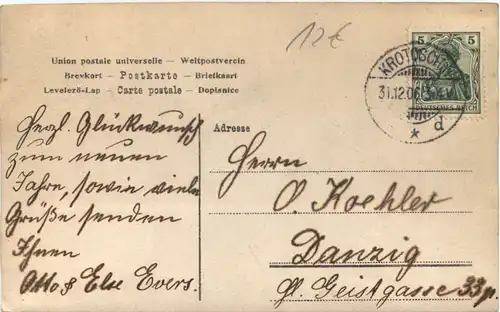 12€
Union postale universelle — Weltpostverein
Brevkort — Postkarte — Briefkaart
Levelező-Lap — Carte postale — Dopisnice
5 5
DEUTSCHES REICH
31.12.06
* d
Adresse
Herzl. Glückwunsch
zum neuen
Jahre, sowie viele
Grüße senden
Ihnen
Otto & Else Evers.
Herrn
O. Koehler
Danzig
Hl. Geistgasse 33 p.